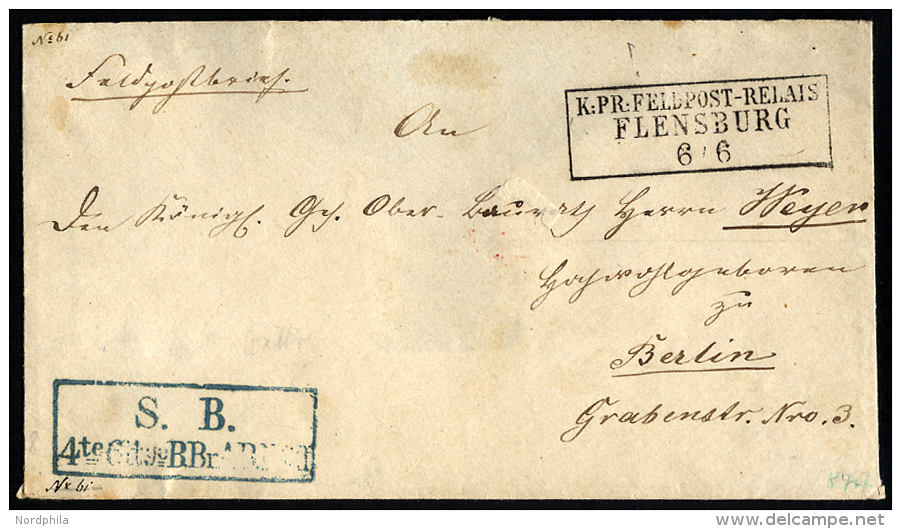 No 61
Feldpostbrief.
K:PR:FELDPOST-RELAIS
FLENSBURG
6/6
An
Den Königl. Geh. Ober-Baurath Herrn Weyer
Hochwohlgeboren
zu
Berlin
Grabenstr. Nro. 3.
S. B.
4te
No 61
© Nordphila
http://www.delcampe.net